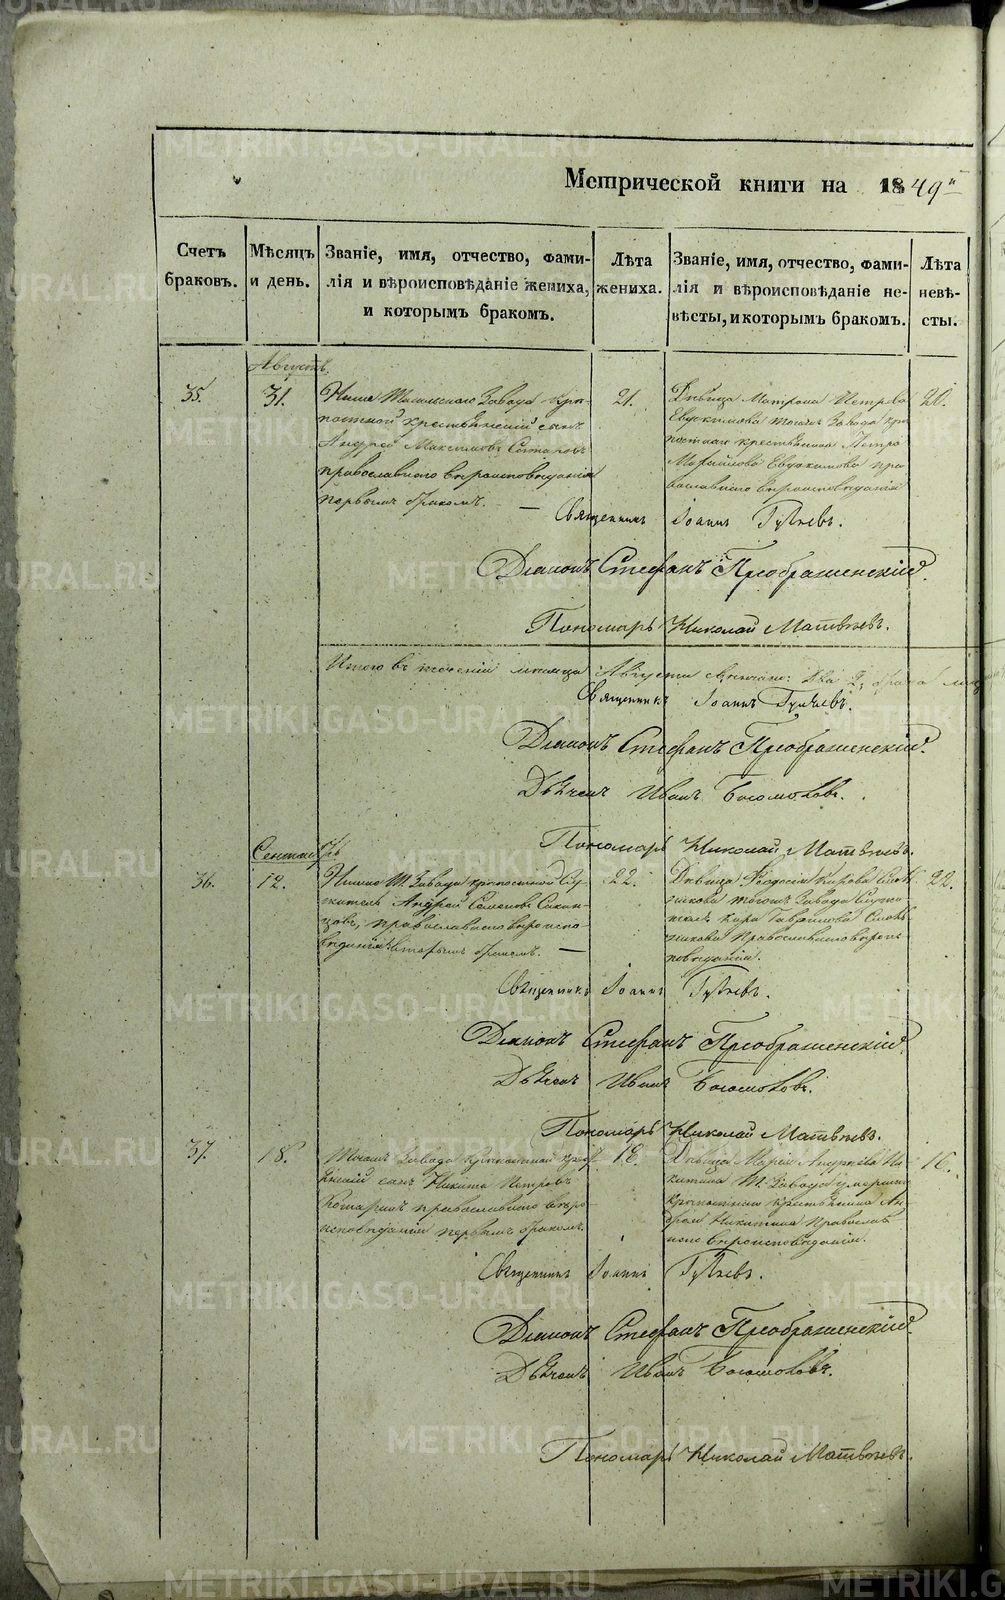 Метрической книги на 1849й
Счетъ браковъ.
Мѣсяцъ и день.
Званіе, имя, отчество, фами-
лія и вѣроисповѣданіе жениха,
и которымъ бракомъ.
Лѣта жениха.
Званіе, имя, отчество, фами-
лія и вѣроисповѣданіе не-
вѣсты, и которымъ бракомъ.
Лѣта невѣ-
сты.
Августъ.
35.
31.
Нижне Тагильскаго Завода крѣ-
постной крестьянскій сынъ
Андрей Максимовъ
православнаго вѣроисповѣданія
первымъ бракомъ.
21.
Дѣвица Матрона Петрова
Евдокимова тогожъ Завода крѣ
постнаго крестьянина Петра
Евдокимова пра
вославнаго вѣроисповѣданія
20.
Священникъ Іоаннъ
Діаконъ Стефанъ Преображенскій.
Пономарь Николай Матвѣевъ.
Итого въ теченіи мѣсяца Августа Два 2, брака
Священникъ Іоаннъ
Діаконъ Стефанъ Преображенскій.
Дьячекъ Иванъ Богомоловъ.
Пономарь Николай Матвѣевъ.
Сентябрь
36.
12.
Нижне Т. Завода крѣпостной Слу-
житель Андрей Семеновъ
православнаго вѣроиспо-
вѣданія вторымъ бракомъ.
22.
Дѣвица Ѳеодосія Кирова
тогожъ Завода Служи
теля Кира Гавриилова
Православнаго вѣроис
повѣданія.
22.
Священникъ Іоаннъ
Діаконъ Стефанъ Преображенскій.
Дьячекъ Иванъ Богомоловъ.
Пономарь Николай Матвѣевъ.
37.
18.
Тогожъ Завода крѣпостной крест
янскій сынъ Никита Петровъ
православнаго вѣро
исповѣданія первымъ бракомъ.
18.
Дѣвица Марія Андреева Ни
китина Т. Завода умершаго
крѣпостнаго крестьянина Ан
дрея Никитина Православ
наго вѣроисповѣданія.
16.
Священникъ Іоаннъ
Діаконъ Стефанъ Преображенскій.
Дьячекъ Иванъ Богомоловъ.
Пономарь Николай Матвѣевъ.
METRIKI.GASO-URAL.RU